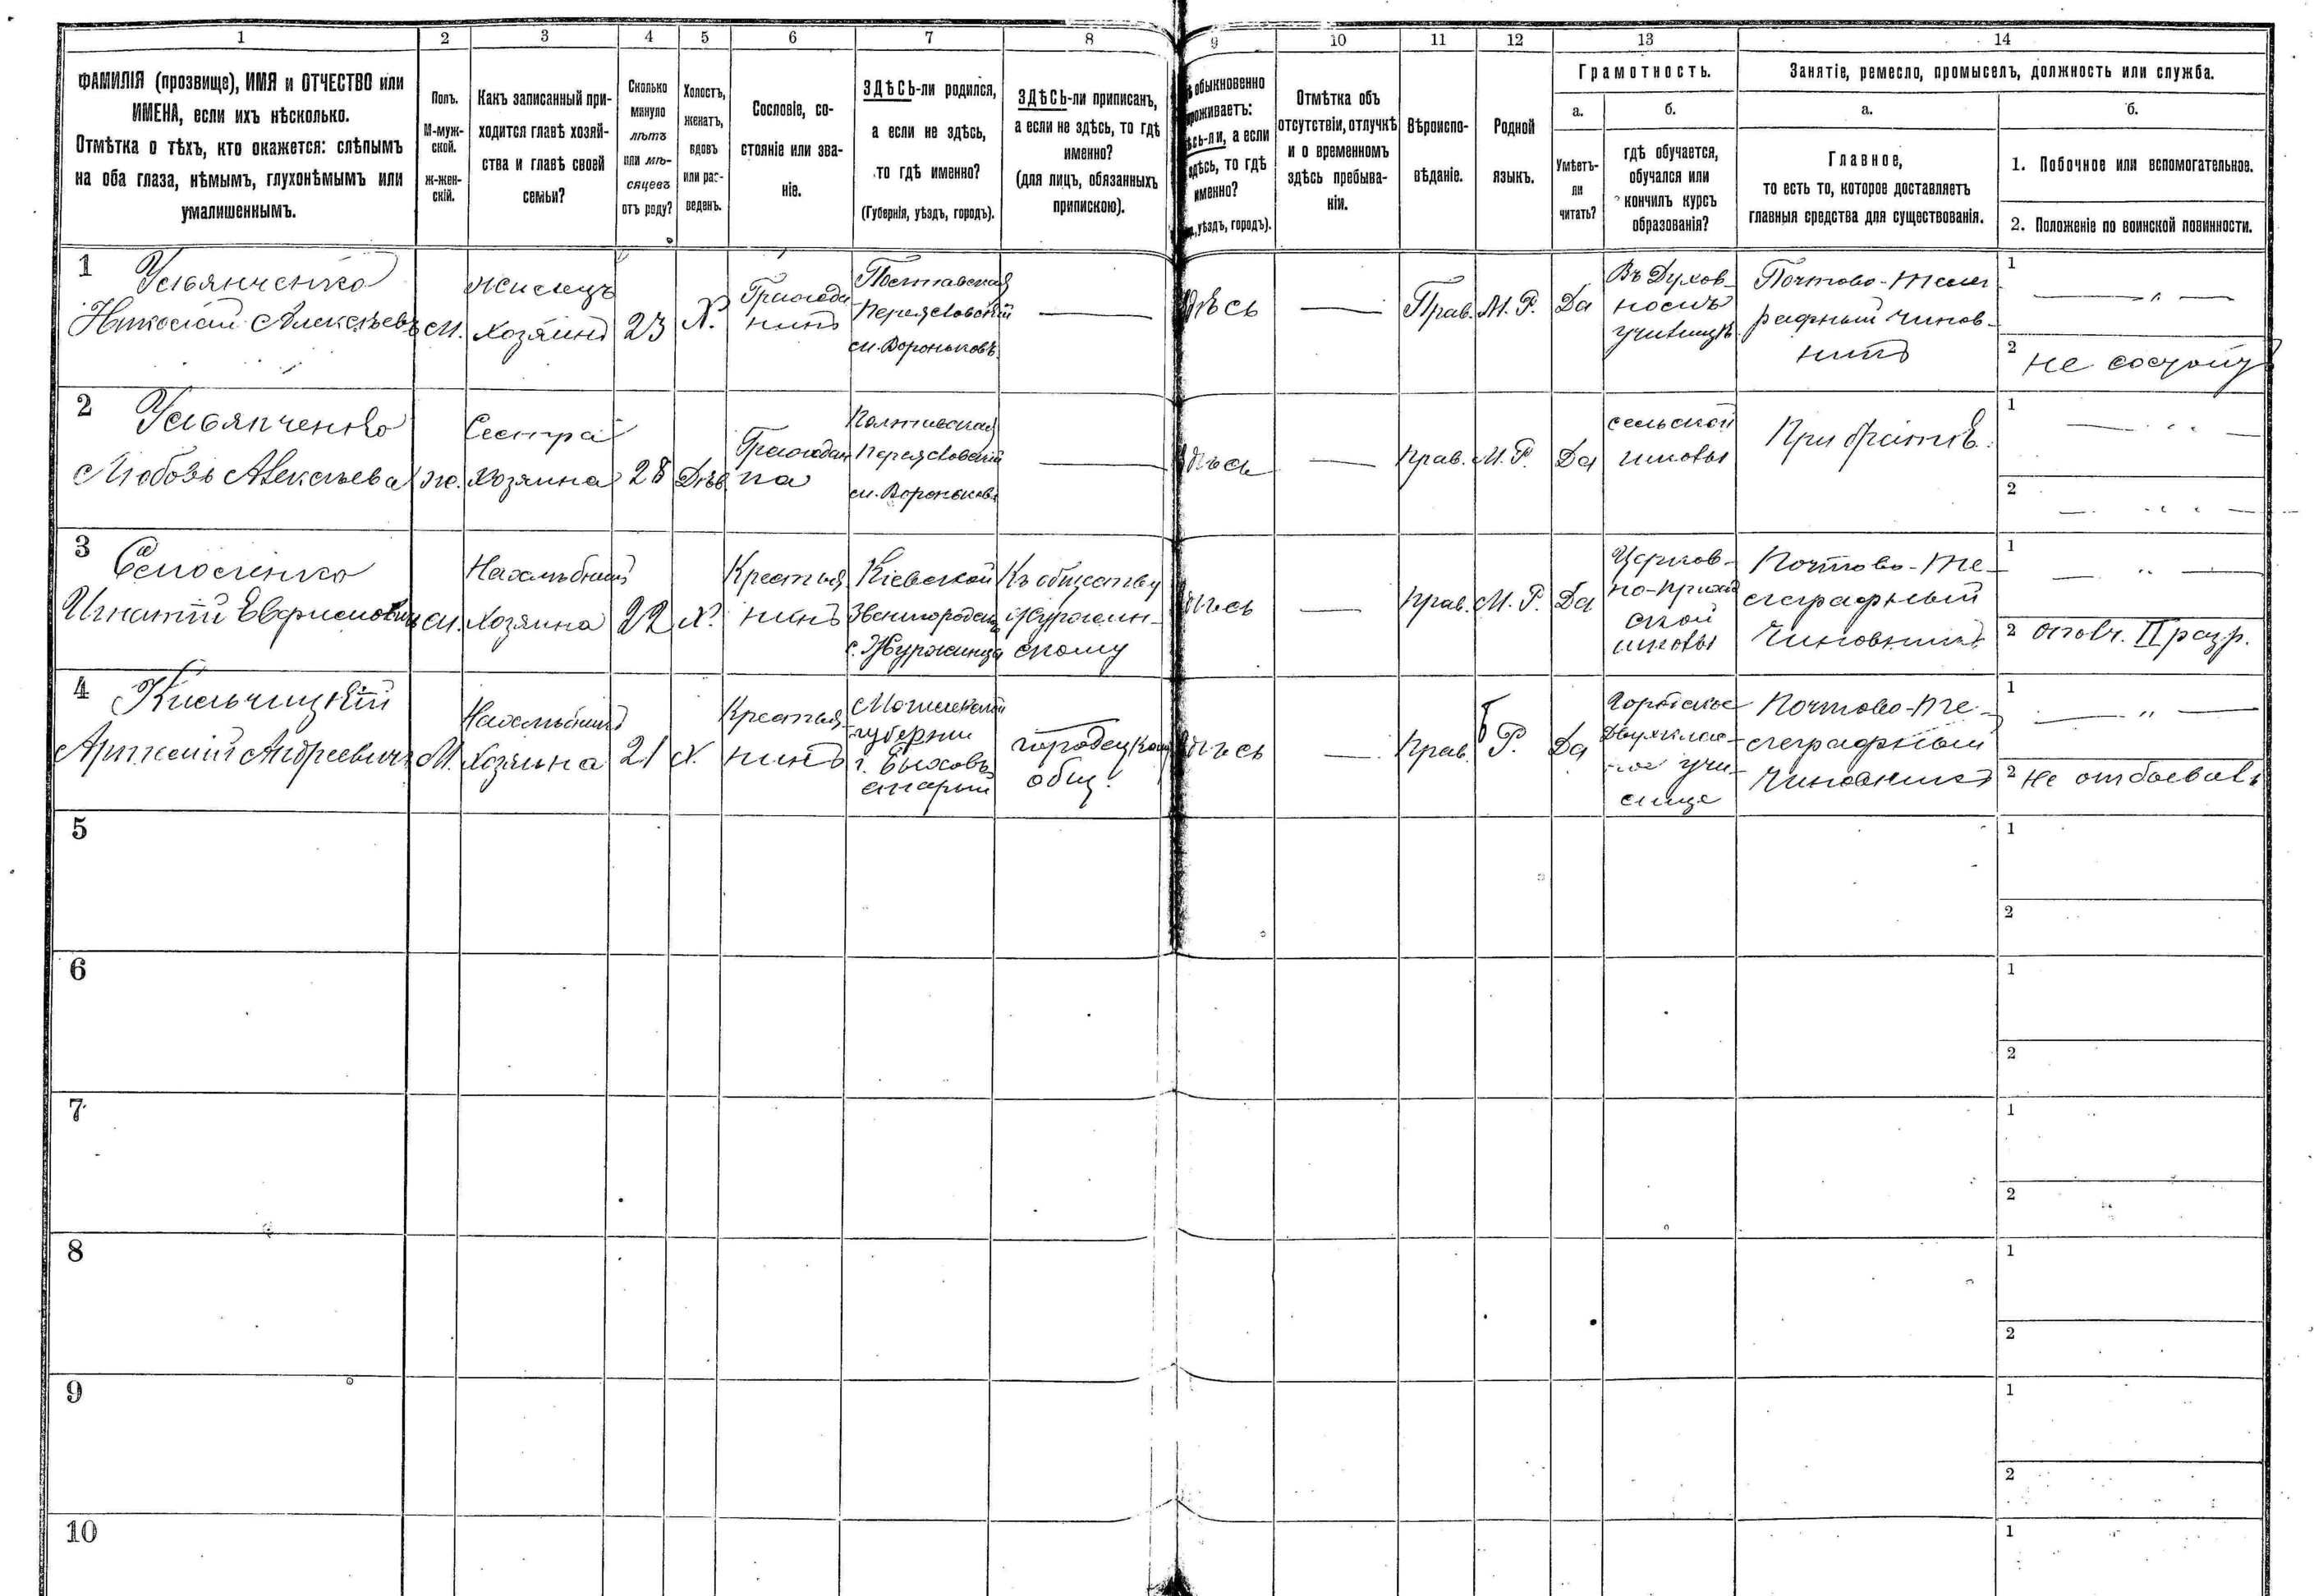 1 2 3 4 5 6 7 8 9 10 11 12 13 14
ФАМИЛІЯ (прозвище), ИМЯ и ОТЧЕСТВО или
ИМЕНА, если ихъ нѣсколько.
Отмѣтка о тѣхъ, кто окажется: слѣпымъ
на оба глаза, нѣмымъ, глухонѣмымъ или
умалишеннымъ.
Полъ.
М-муж-
ской.
ж-жен-
скій.
Какъ записанный при-
ходится главѣ хозяй-
ства и главѣ своей
семьи?
Сколько
минуло
лѣтъ
или мѣ-
сяцевъ
отъ роду?
Холостъ,
женатъ,
вдовъ
или раз-
веденъ.
Сословіе, со-
стояніе или зва-
ніе.
ЗДѢСЬ-ли родился,
а если не здѣсь,
то гдѣ именно?
(Губернія, уѣздъ, городъ).
ЗДѢСЬ-ли приписанъ,
а если не здѣсь, то гдѣ
именно?
(для лицъ, обязанныхъ
припискою).
обыкновенно
проживаетъ:
здѣсь-ли, а если
не здѣсь, то гдѣ
именно?
уѣздъ, городъ).
Отмѣтка объ
отсутствіи, отлучкѣ
и о временномъ
здѣсь пребыва-
ніи.
Вѣроиспо-
вѣданіе.
Родной
языкъ.
Грамотность.
а.
Умѣетъ-
ли
читать?
б.
гдѣ обучается,
обучался или
кончилъ курсъ
образованія?
Занятіе, ремесло, промыселъ, должность или служба.
а.
Главное,
то есть то, которое доставляетъ
главныя средства для существованія.
б.
1. Побочное или вспомогательное.
2. Положеніе по воинской повинности.
1
Ульянченко
Николай Алексѣевъ
М.
жилецъ
Хозяинъ
23
Х.
Гражда
нинъ
Полтавская
Переяловскій
м. Вороньковъ
—
здѣсь
—
Прав.
М. Р.
Да
Въ Духов-
номъ
училищѣ
Почтово-телег
рафный чинов-
никъ
1 — " —
2 не состоитъ
2
Ульянченко
Любовь Алексѣева
ж.
Сестра
Хозяина
28
Дѣв
Граждан
ка
Полтавская
Переяловскій
м. Вороньковъ
—
здѣсь
—
Прав.
М. Р.
Да
сельской
школы
При братѣ.
1 — " —
2 — " —
3
Игнатій
м.
Нахлѣбникъ
Хозяина
22
Х.
Крестья
нинъ
Кіевской
Звенигородск
с. Журжинца
Къ обществу
Журжин-
скому
здѣсь
—
Прав.
М. Р.
Да
Церков-
но-приход
ской
школы
Почтово-те-
леграфный
Чиновникъ
1 — " —
2 ополч. II разр.
4
Кильчицкій
Артемій Андреевичъ
М.
Нахлѣбникъ
Хозяина
21
Х.
Крестья-
нинъ
Могилевской
губерніи
г. Быховъ
старый
городецкому
общ.
здѣсь
—
Прав.
Б Р.
Да
Двухклас-
ное учи-
лище
Почтово-те-
леграфный
Чиновникъ
1 — " —
2 не отбывалъ
5
1
2
6
1
2
7
1
2
8
1
2
9
1
2
10
1